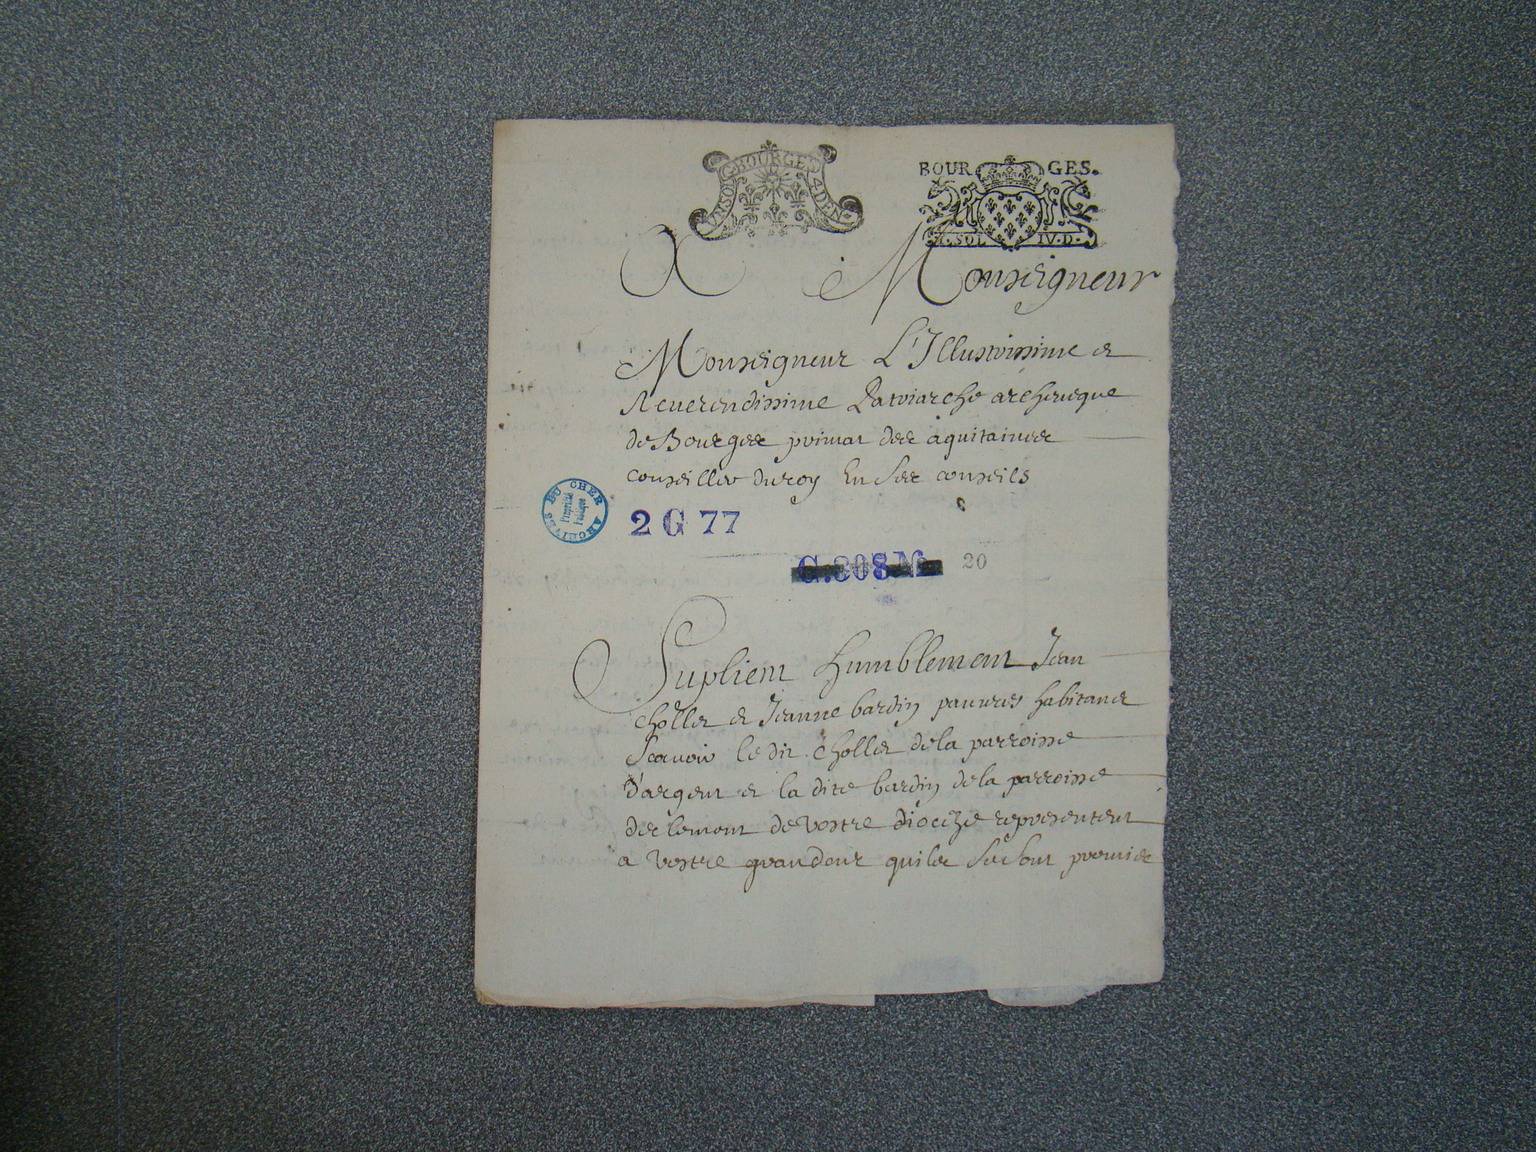 VNSOL BOURGES 4 DEN
BOURGES.
SOL IV.D.
A Monseigneur
Monseigneur L'Illustrissime et
Reuerendissime Patriarche archeuesque
de Bourges primat des aquitaines
conseiller du roy En ses conseils
ARCHIVES DU CHER
Propriété
Publique
2 G 77
G.308 M 20
Suplient humblement Jean
chollet et Jeanne bardin pauures habitans
scauoir le dit chollet de la parroisse
d'argent et la dite bardin de la parroisse
de clemont de vostre diocèze representent
a vostre grandeur quils se sont promis